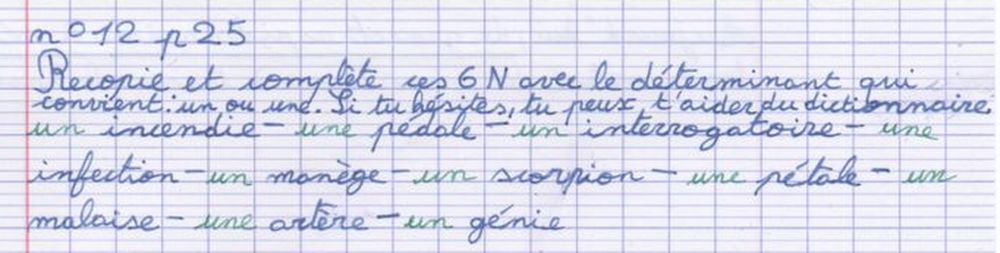 n°12 p25
Recopie et complète ces GN avec le déterminant qui
convient : un ou une. Si tu hésites, tu peux t'aider du dictionnaire.
un incendie – une pédale – un interrogatoire – une
infection – un manège – un scorpion – une pétale – un
malaise – une artère – un génie